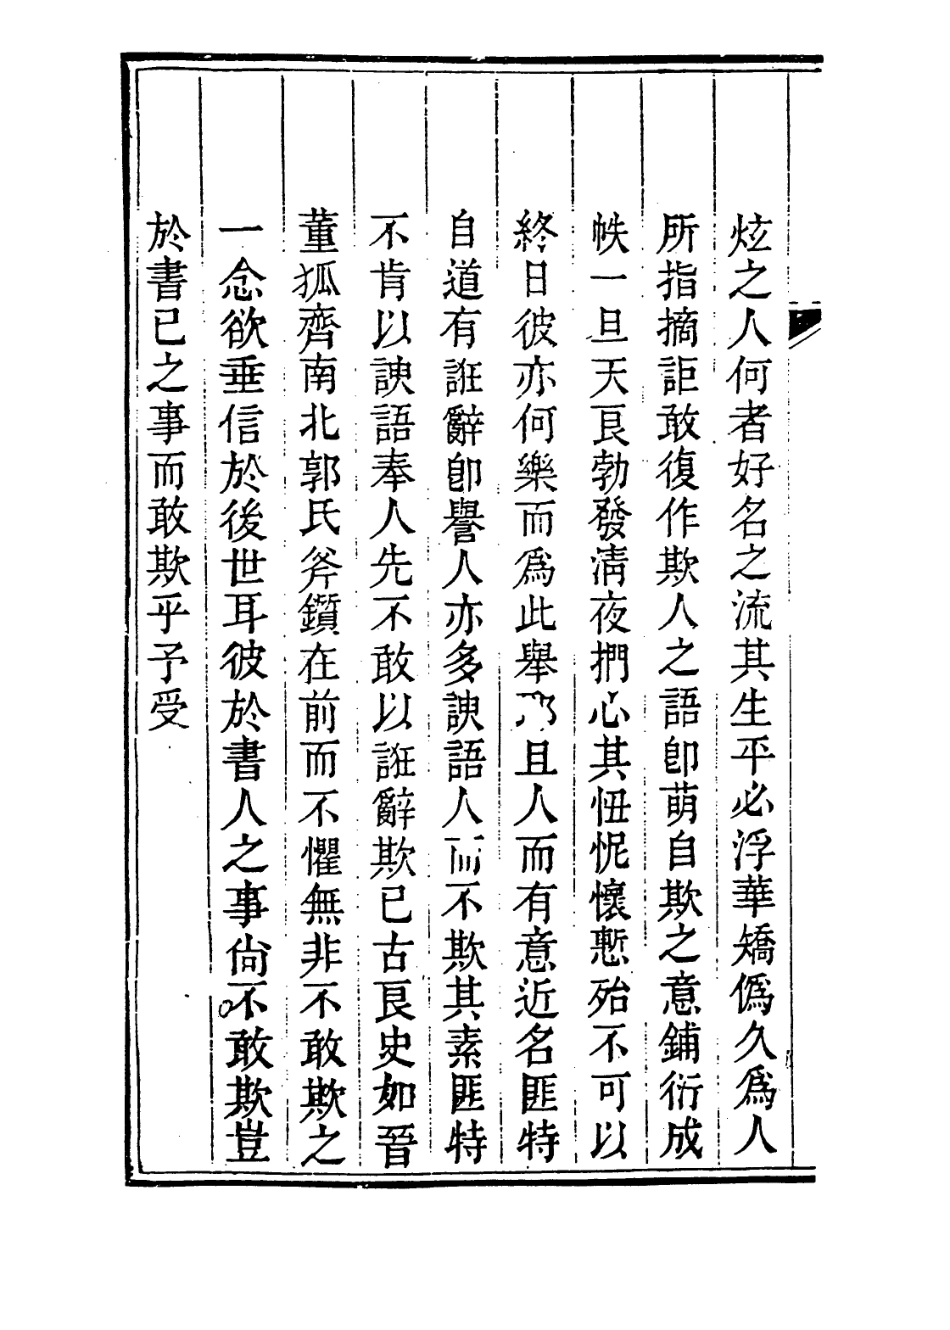 炫之人何者好名之流其生平必浮華矯僞久爲人
所指摘詎敢復作欺人之語卽萌自欺之意鋪衍成
帙一旦天良勃發淸夜捫心其忸怩懷慙殆不可以
終日彼亦何樂而爲此舉耶且人而有意近名匪特
自道有誑辭卽譽人亦多諛語人而不欺其素匪特
不肯以諛語奉人先不敢以誑辭欺已古良史如晉
董狐齊南北郭氏斧鑕在前而不懼無非不敢欺之
一念欲垂信於後世耳彼於書人之事尙不敢欺豈
於書已之事而敢欺乎予受